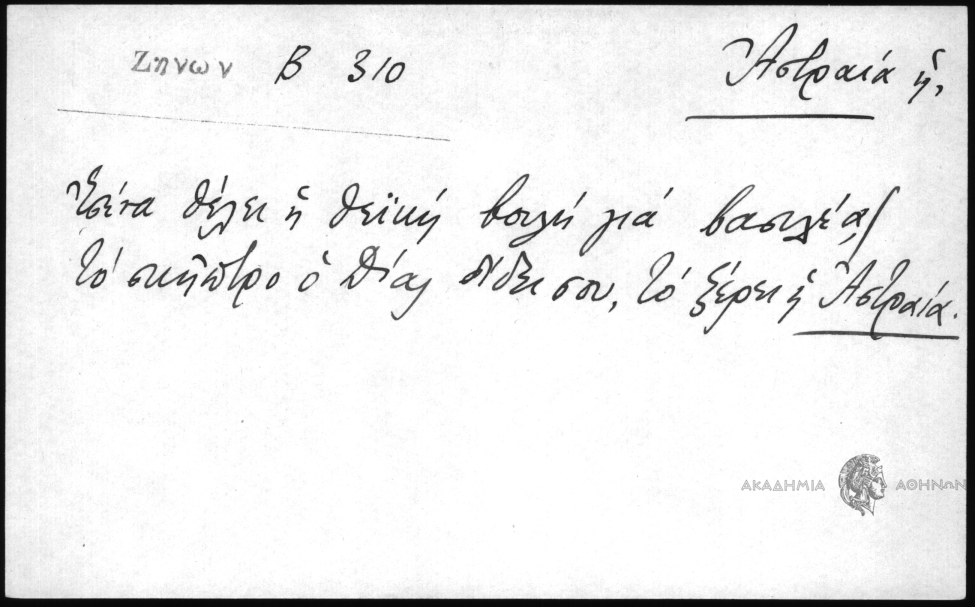 Ζηνων Β 310
Ἀστραία ἡ,
Ἐσένα θέλει ἡ θεϊκή βουλή γιά βασιλέα/
τό σκῆπτρο ὁ Δίας δίδει σου, τό ξέρει ἡ Ἀστραία.
ΑΚΑΔΗΜΙΑ ΑΘΗΝΩΝ